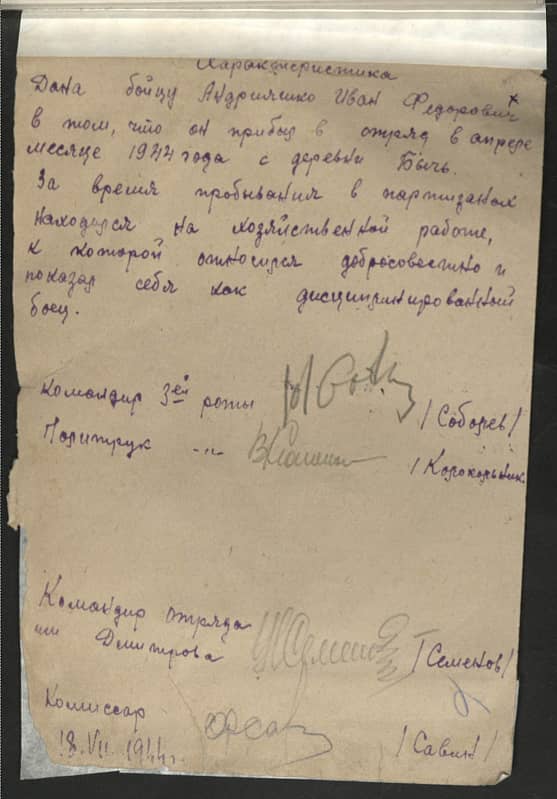 Характеристика
Дана бойцу Андрияшко Иван Федорович
в том, что он прибыл в отряд в апреле
месяце 1944 года с деревни Бычь.
За время пробывания в партизанах
находился на хозяйственной работе,
к которой относился добросовестно и
показал себя как дисциплинированный
боец.
Командир 3ей роты /Соболев/
Политрук -"- /Колокольник
Командир отряда /Семенов/
им Дмитрова
Комиссар /Савин/
18.VII 1944г.